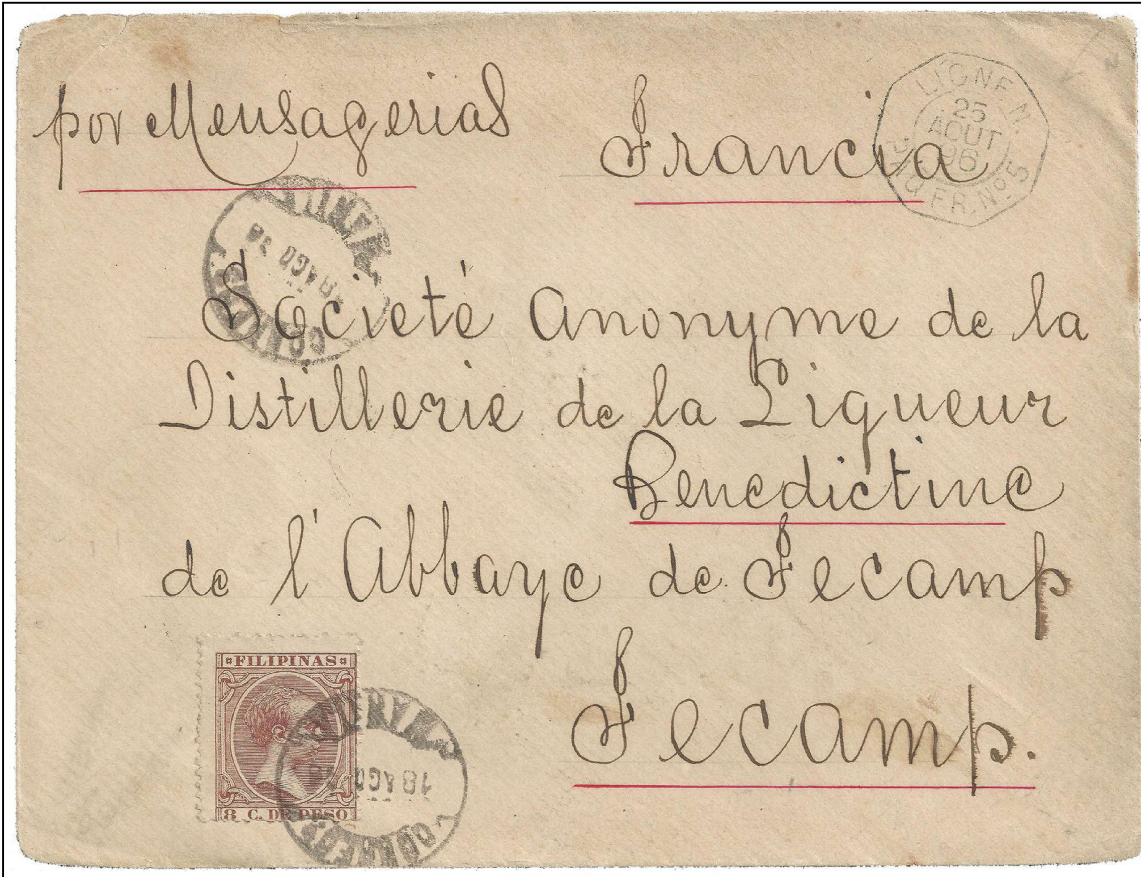 por Mensagerias
Francia
LIGNE N.
25
AOUT
96
PAQ. FR. No 5
18 AGO
CORREOS
Societé Anonyme de la
Distillerie de la Liqueur
Benedictine
de l'Abbaye de Fecamp
Fecamp.
FILIPINAS
8 C. DE PESO
18 AGO
CORREOS